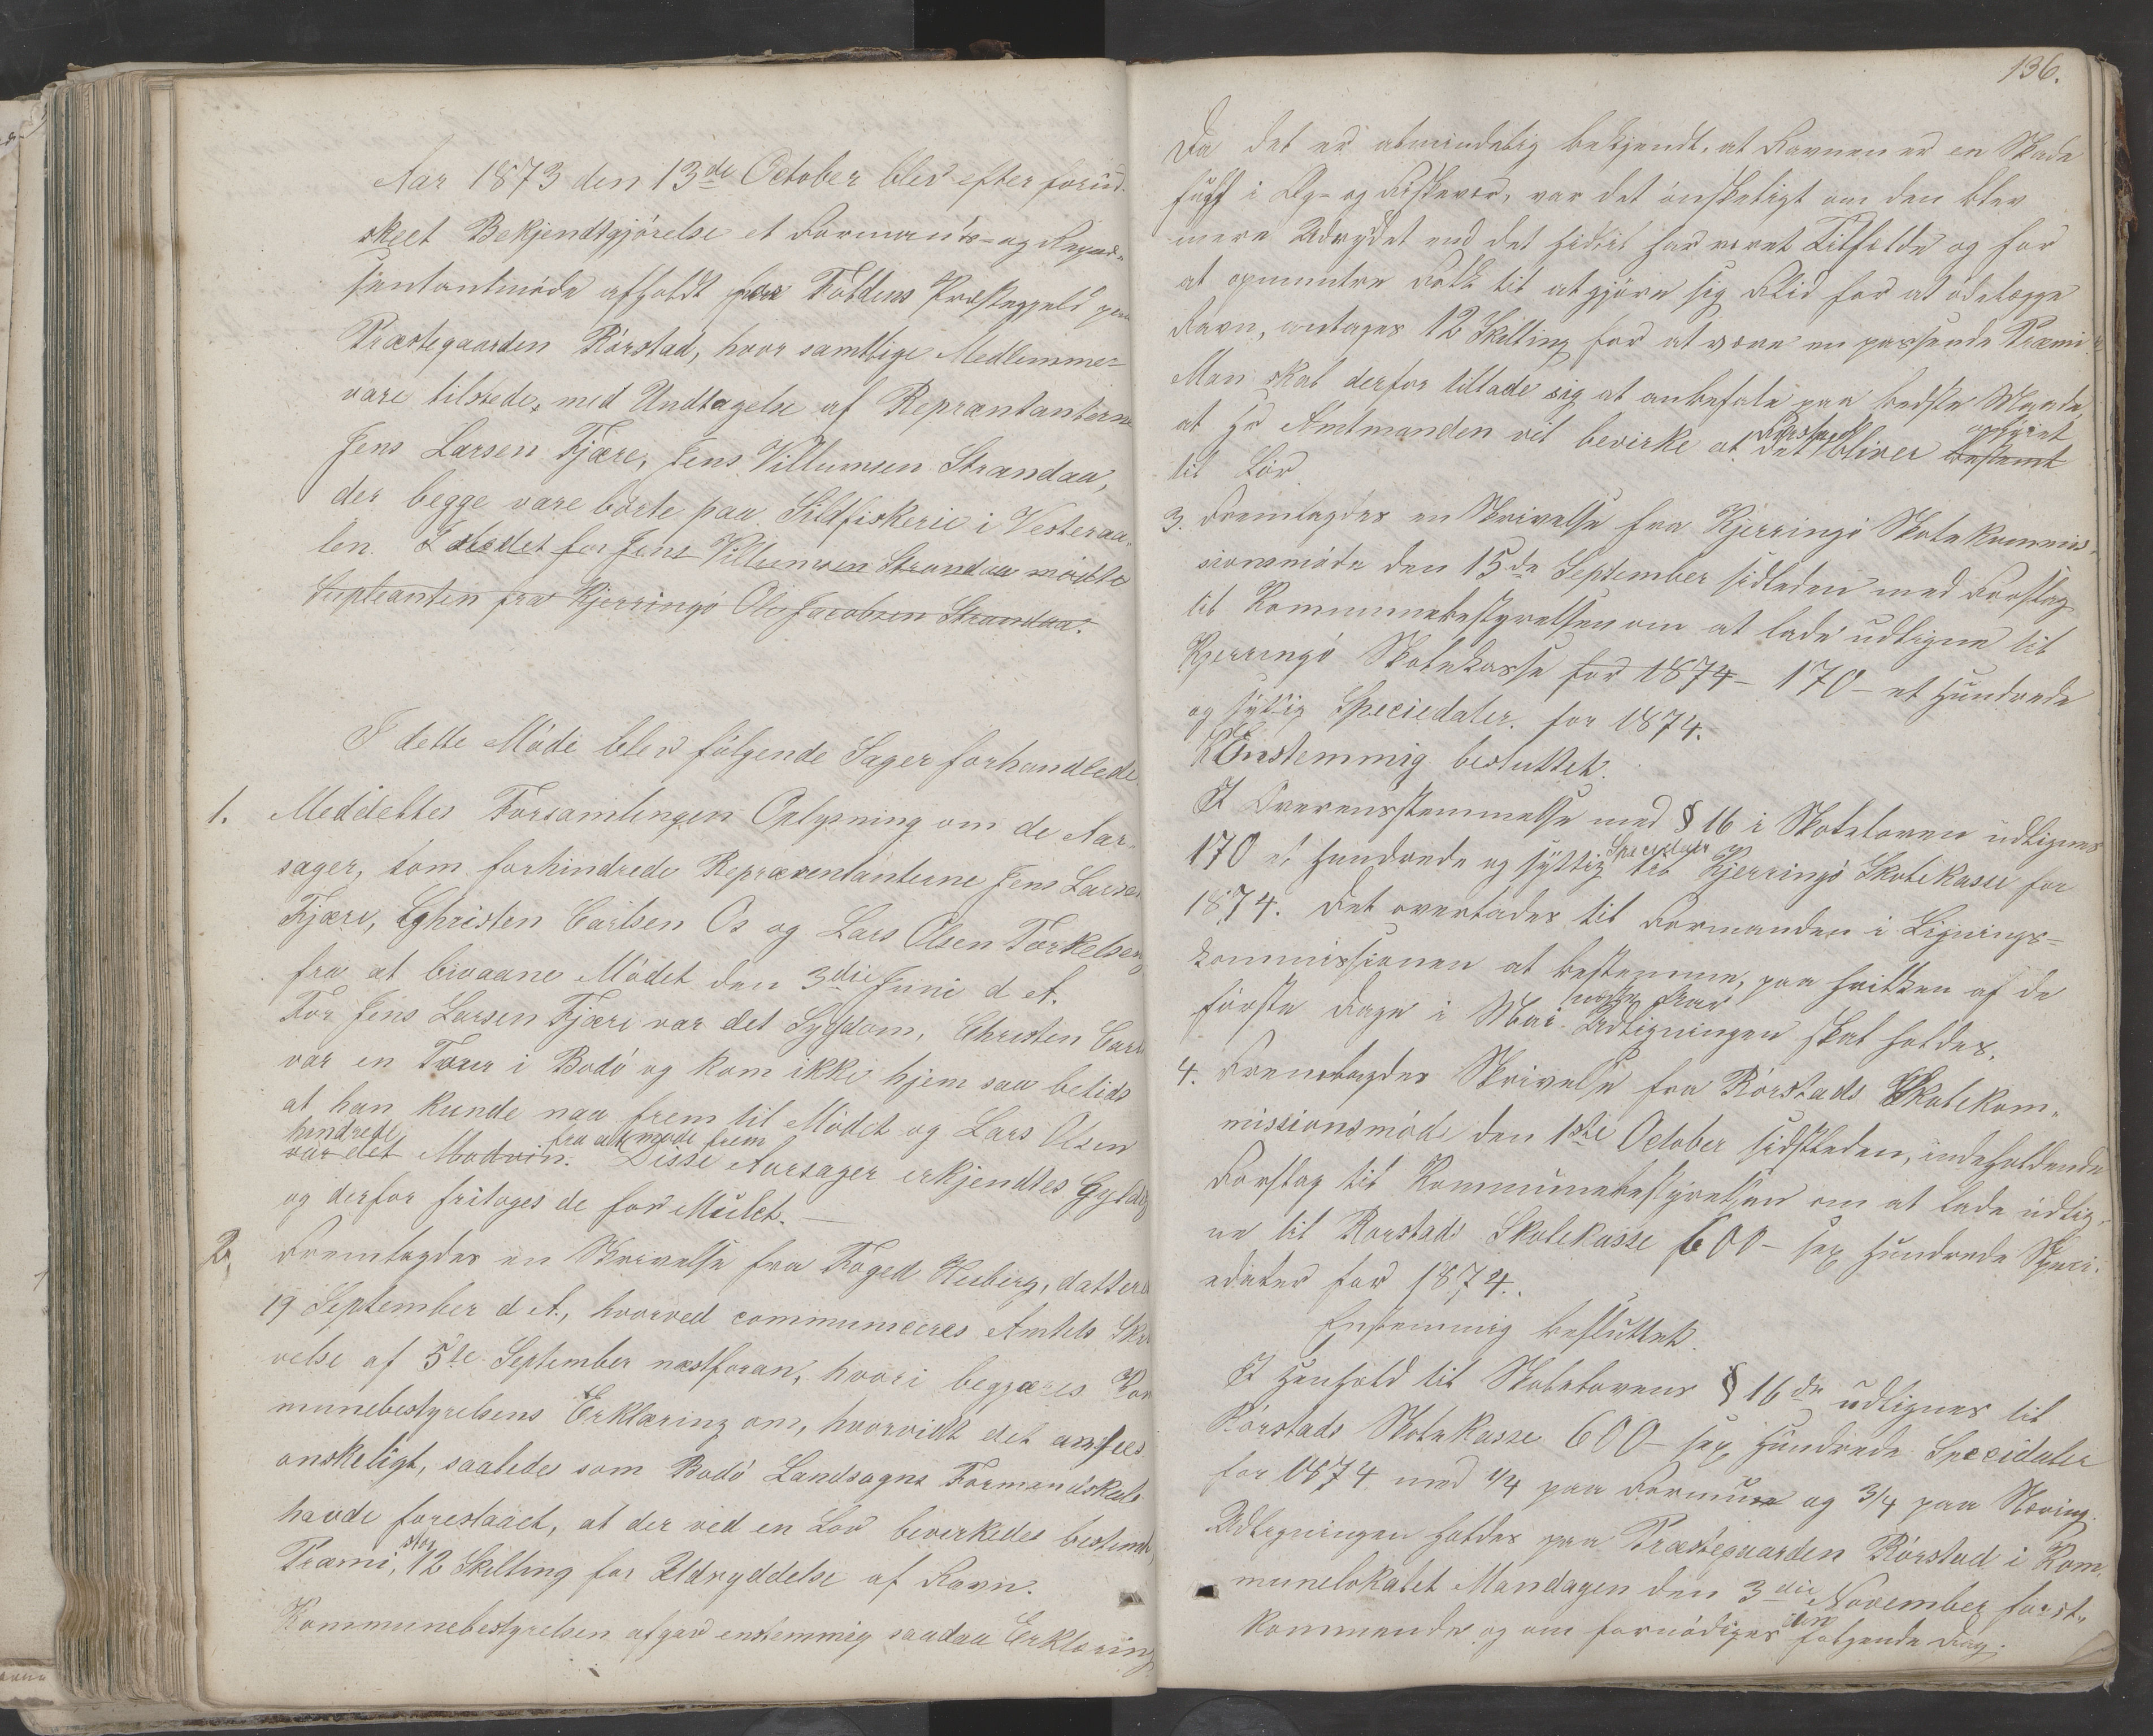 Aar 1873 den 13de October blev efter forud
skeet Bekjendtgjörelse et Formands- og Repræ-
sentantmöde afholdt for Foldens Præstegjeld paa
Præstegaarden Rörstad, hvor samtlige Medlemme-
vare tilstede, med Undtagelse af Repræntanterne
Jens Larsen Fjære, Jens Villumsen Strandaa,
der begge vare borte paa Sildfiskerie i Vesteraa-
len. I stedet for Jens Villumsen Strandaa mödte
Supleanten fra Kjerringö Ole Jacobsen Strandaa.
I dette Möde blev fölgende Sager forhandlede
1. Meddeltes Forsamlingen Oplysning om de Aar-
sager, som forhindrede Repræsentanterne Jens Larsen
Fjære, Christen Carlsen Os og Lars Olsen Torkelseng
fra at bivaane Mödet den 3die Juni d A.
For Jens Larsen Fjære var det Sygdom, Christen Carls
var en Tour i Bodö og kom ikke hjem saa betids
at han kunde naa frem til Mödet og Lars Olsen
hindrede fra at möde frem
var det Modvin. Disse Aarsager erkjendtes Gyldig
og derfor fritages de for Mulct. —
2, Fremlagdes en Skrivelse fra Foged Heiberg, datteret
19 September d A., hvorved communiceres Amtets Skri
velse af 5te September næstforan, hvori begjæres Kom
munebestyrelsens Erklæring om, hvorvidt det ansees
önskeligt, saaledes som Bodö Landsogns Formandskab
havde forestaaet, at der ved en Lov bevirkedes bestemt
stor
Præmi, 12 Skilling for Udryddelse af Ravn.
Kommunebestyrelsen afgav enstemmig saadan Erklæring
136.
Da det er almindelig bekjendt, at Ravnen er en Skade
fugl i Æg- og Fiskevær, var det önskeligt om den blev
mere Udrydet end det hidtil har været Tilfælde og for
at opmuntre Folk til at gjöre sig Flid for at ödelægge
Ravn, antages 12 Skilling for at være en passende Præmi
Man skal derfor tillade sig at anbefale paa bedste Maade,
at Hr Amtmanden vil bevirke at det Forslag bliver bestemt ophöiet
til Lov.
3. Fremlagdes en Skrivelse fra Kjerringö Skolekommis-
sionsmöde den 15de September sidleden med Forslag
til Kommunebestyrelsen om at lade udligne til
Kjerringö Skolekasse for 1874 - 170 - et Hundrede
og syttig Speciedaler. for 1874.
Enstemmig besluttet.
I Overensstemmelse med § 16 i Skoleloven udlignes
170 et Hundrede og syttig Speciedaler til Kjerringö Skolekasse for
1874. Det overlades til Formanden i Lignings-
kommissionen at bestemme, paa hvilken af de
förste Dage i Mai næste Aar Udligningen skal holdes.
4. Fremlagdes Skrivelse fra Rörstads Skolekom-
missionsmöde den 1ste October sidstleden, indeholdende
Forslag til Kommunebestyrelsen om at lade udlig-
ne til Rorstads Skolekasse 600 - sex Hundrede Speci-
edaler for 1874.
Enstemmig besluttet.
I Henhold til Skolelovens § 16de udlignes til
Rörstads Skolekasse 600 - sex Hundrede Specidaler
for 1874 med 1/4 paa Formue og 3/4 paa Næring.
Udligningen holdes paa Præstegaarden Rörstad i Kom-
munelokalet Mandagen den 3die November först-
kommende og om fornödiges den fölgende Dag.